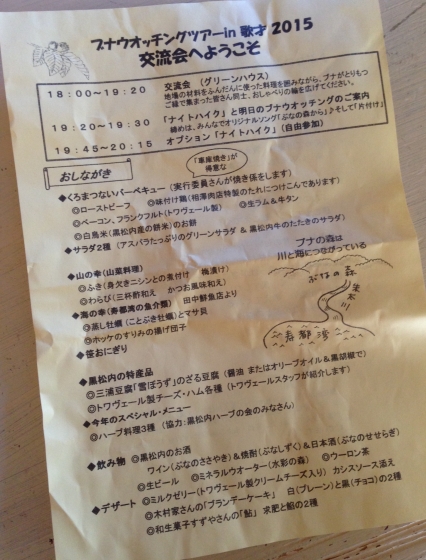 ブナウオッチングツアーin 歌才 2015
交流会へようこそ
18:00~19:20 交流会 (グリーンハウス)
地場の材料をふんだんに使った料理を囲みながら、ブナがとりもつ
ご縁で集まった皆さん同士、おしゃべりの輪を広げてください。
19:20~19:30 「ナイトハイク」と明日のブナウオッチングのご案内
締めは、みんなでオリジナルソング「ぶなの森から」♪そして「片付け」
19:45~20:15 オプション「ナイトハイク」(自由参加)
おしながき
「車座焼き」が
得意な
◆くろまつないバーベキュー (実行委員さんが焼き係をします)
◎ローストビーフ ◎味付け鶏(相澤肉店特製のたれにつけこんであります)
◎ベーコン、フランクフルト(トワヴェール製) ◎生ラム&牛タン
◎白鳥米(黒松内産の餅米)のお餅
◆サラダ2種 (アスパラたっぷりのグリーンサラダ & 黒松内牛のたたきのサラダ)
◆山の幸(山菜料理)
◎ふき(身欠きニシンとの煮付け 梅漬け)
◎わらび(三杯酢和え かつお風味和え)
◆海の幸(寿都湾の魚介類) 田中鮮魚店より
◎蒸し牡蠣(ことぶき牡蠣)とマサ貝
◎ホッケのすりみの揚げ団子
◆笹おにぎり
ブナの森は
川と海につながっている
ぶなの森
朱太川
寿都湾
◆黒松内の特産品
◎三浦豆腐「雪ぼうず」のざる豆腐 (醤油 またはオリーブオイル&黒胡椒で)
◎トワヴェール製チーズ・ハム各種 (トワヴェールスタッフが紹介します)
◆今年のスペシャル・メニュー
◎ハーブ料理3種 (協力:黒松内ハーブの会のみなさん)
◆飲み物 ◎黒松内のお酒
ワイン(ぶなのささやき)&焼酎(ぶなしずく)&日本酒(ぶなのせせらぎ)
◎生ビール ◎ミネラルウオーター(水彩の森) ◎ウーロン茶
◆デザート ◎ミルクゼリー(トワヴェール製クリームチーズ入り) カシスソース添え
◎木村家さんの「ブランデーケーキ」 白(プレーン)と黒(チョコ)の2種
◎和生菓子すずやさんの「鮎」 求肥と餡の2種